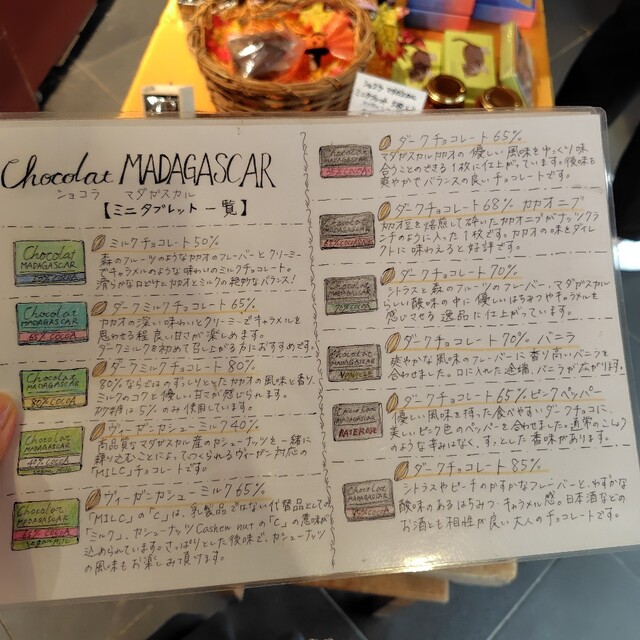 Chocolat MADAGASCAR
ショコラ マダガスカル
【ミニタブレット一覧】
Chocolat
MADAGASCAR
ミルクチョコレート50%
森のフルーツのようなカカオのフレーバーとクリーミー
でキャラメルのような味わいのミルクチョコレート。
滑らかな口どけとカカオとミルクの絶妙なバランス!
Chocolat
MADAGASCAR
65% COCOA
ダークミルクチョコレート65%
カカオの深い味わいとクリーミーでキャラメルを
思わせる程良い甘さが楽しめます。
ダークミルクを初めて召し上がる方におすすめです。
Chocolat
MADAGASCAR
80% COCOA
ダークミルクチョコレート80%
80%ならではのずっしりとしたカカオの風味と香り。
ミルクのコクと優しい甘さが感じられます。
砂糖は5%のみ使用しています。
Chocolat
MADAGASCAR
ヴィーガンカシューミルク40%
高品質なマダガスカル産のカシューナッツを一緒に
練り込むことによってつくられるヴィーガン対応の
「MILC」チョコレートです。
Chocolat
MADAGASCAR
65% COCOA
ヴィーガンカシューミルク65%
「MILC」の「C」は、乳製品ではない代替品としての
「ミルク」、カシューナッツCashew nutの「C」の意味が
込められています。さっぱりとした後味で、カシューナッツ
の風味もお楽しみ頂けます。
ダークチョコレート65%
マダガスカルカカオの優しい風味をゆっくり味
合うことのできる1枚に仕上がっています。後味を
爽やかでバランスの良いチョコレートです。
ダークチョコレート68% カカオニブ
カカオ豆を焙煎して砕いたカカオニブがナッツクラ
ンチのように入った1枚です。カカオの味をダイレ
クトに味わえると好評です。
ダークチョコレート70%
シトラスと森のフルーツのフレーバー。マダガスカル
らしい酸味の中に優しいはちみつやキャラメルを
感じさせる逸品に仕上がっています。
ダークチョコレート70% バニラ
爽やかな風味のフレーバーに香り高いバニラを
合わせました。口に入れた途端、バニラが広がります。
ダークチョコレート65%ピンクペッパー
優しい風味を持った食べやすいダークチョコに、
美しいピンク色のペッパーを合わせました。通常のこんろう
のような辛みはなく、すっとした香味があります。
ダークチョコレート85%
シトラスやピーチのかすかなフレーバーと、わずかな
酸味のあるはちみつ・キャラメル感。日本酒などの
お酒とも相性が良い大人のチョコレートです。